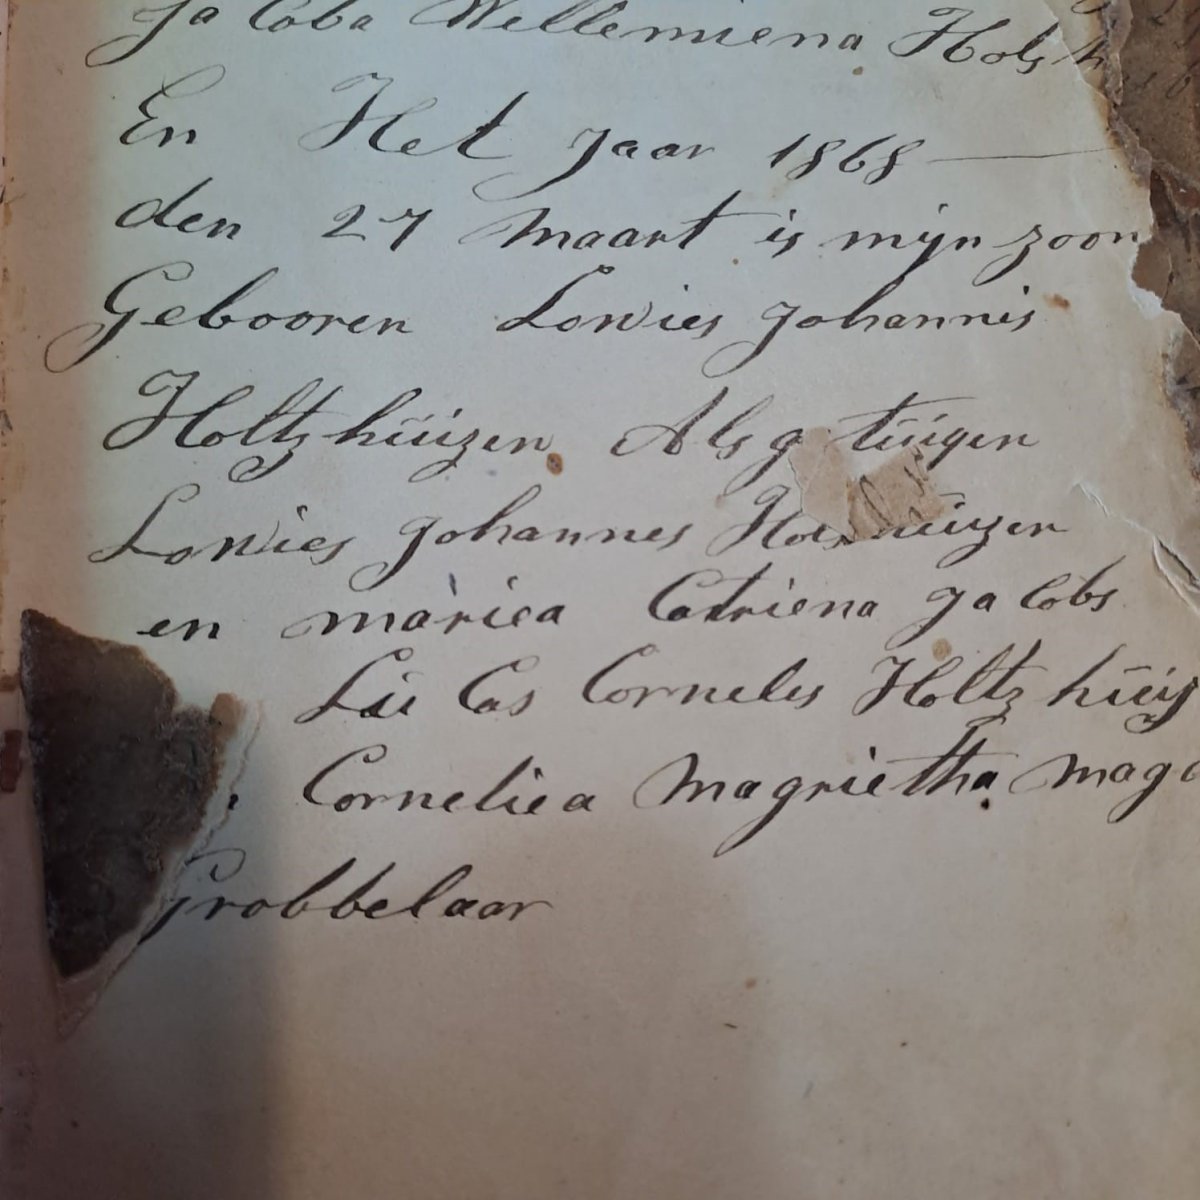 Ja Coba Wellemiena
En Het Jaar 1868
den 27 Maart is mijn zoon
Gebooren Lowies Johannis
Holtzhüizen Als g tüigen
Lowies Johannes
en mariea Catriena Jacobs
Lü Cas Cornelis Holtz hüiz
Corneliea Magrietha Mag
Grobbelaar